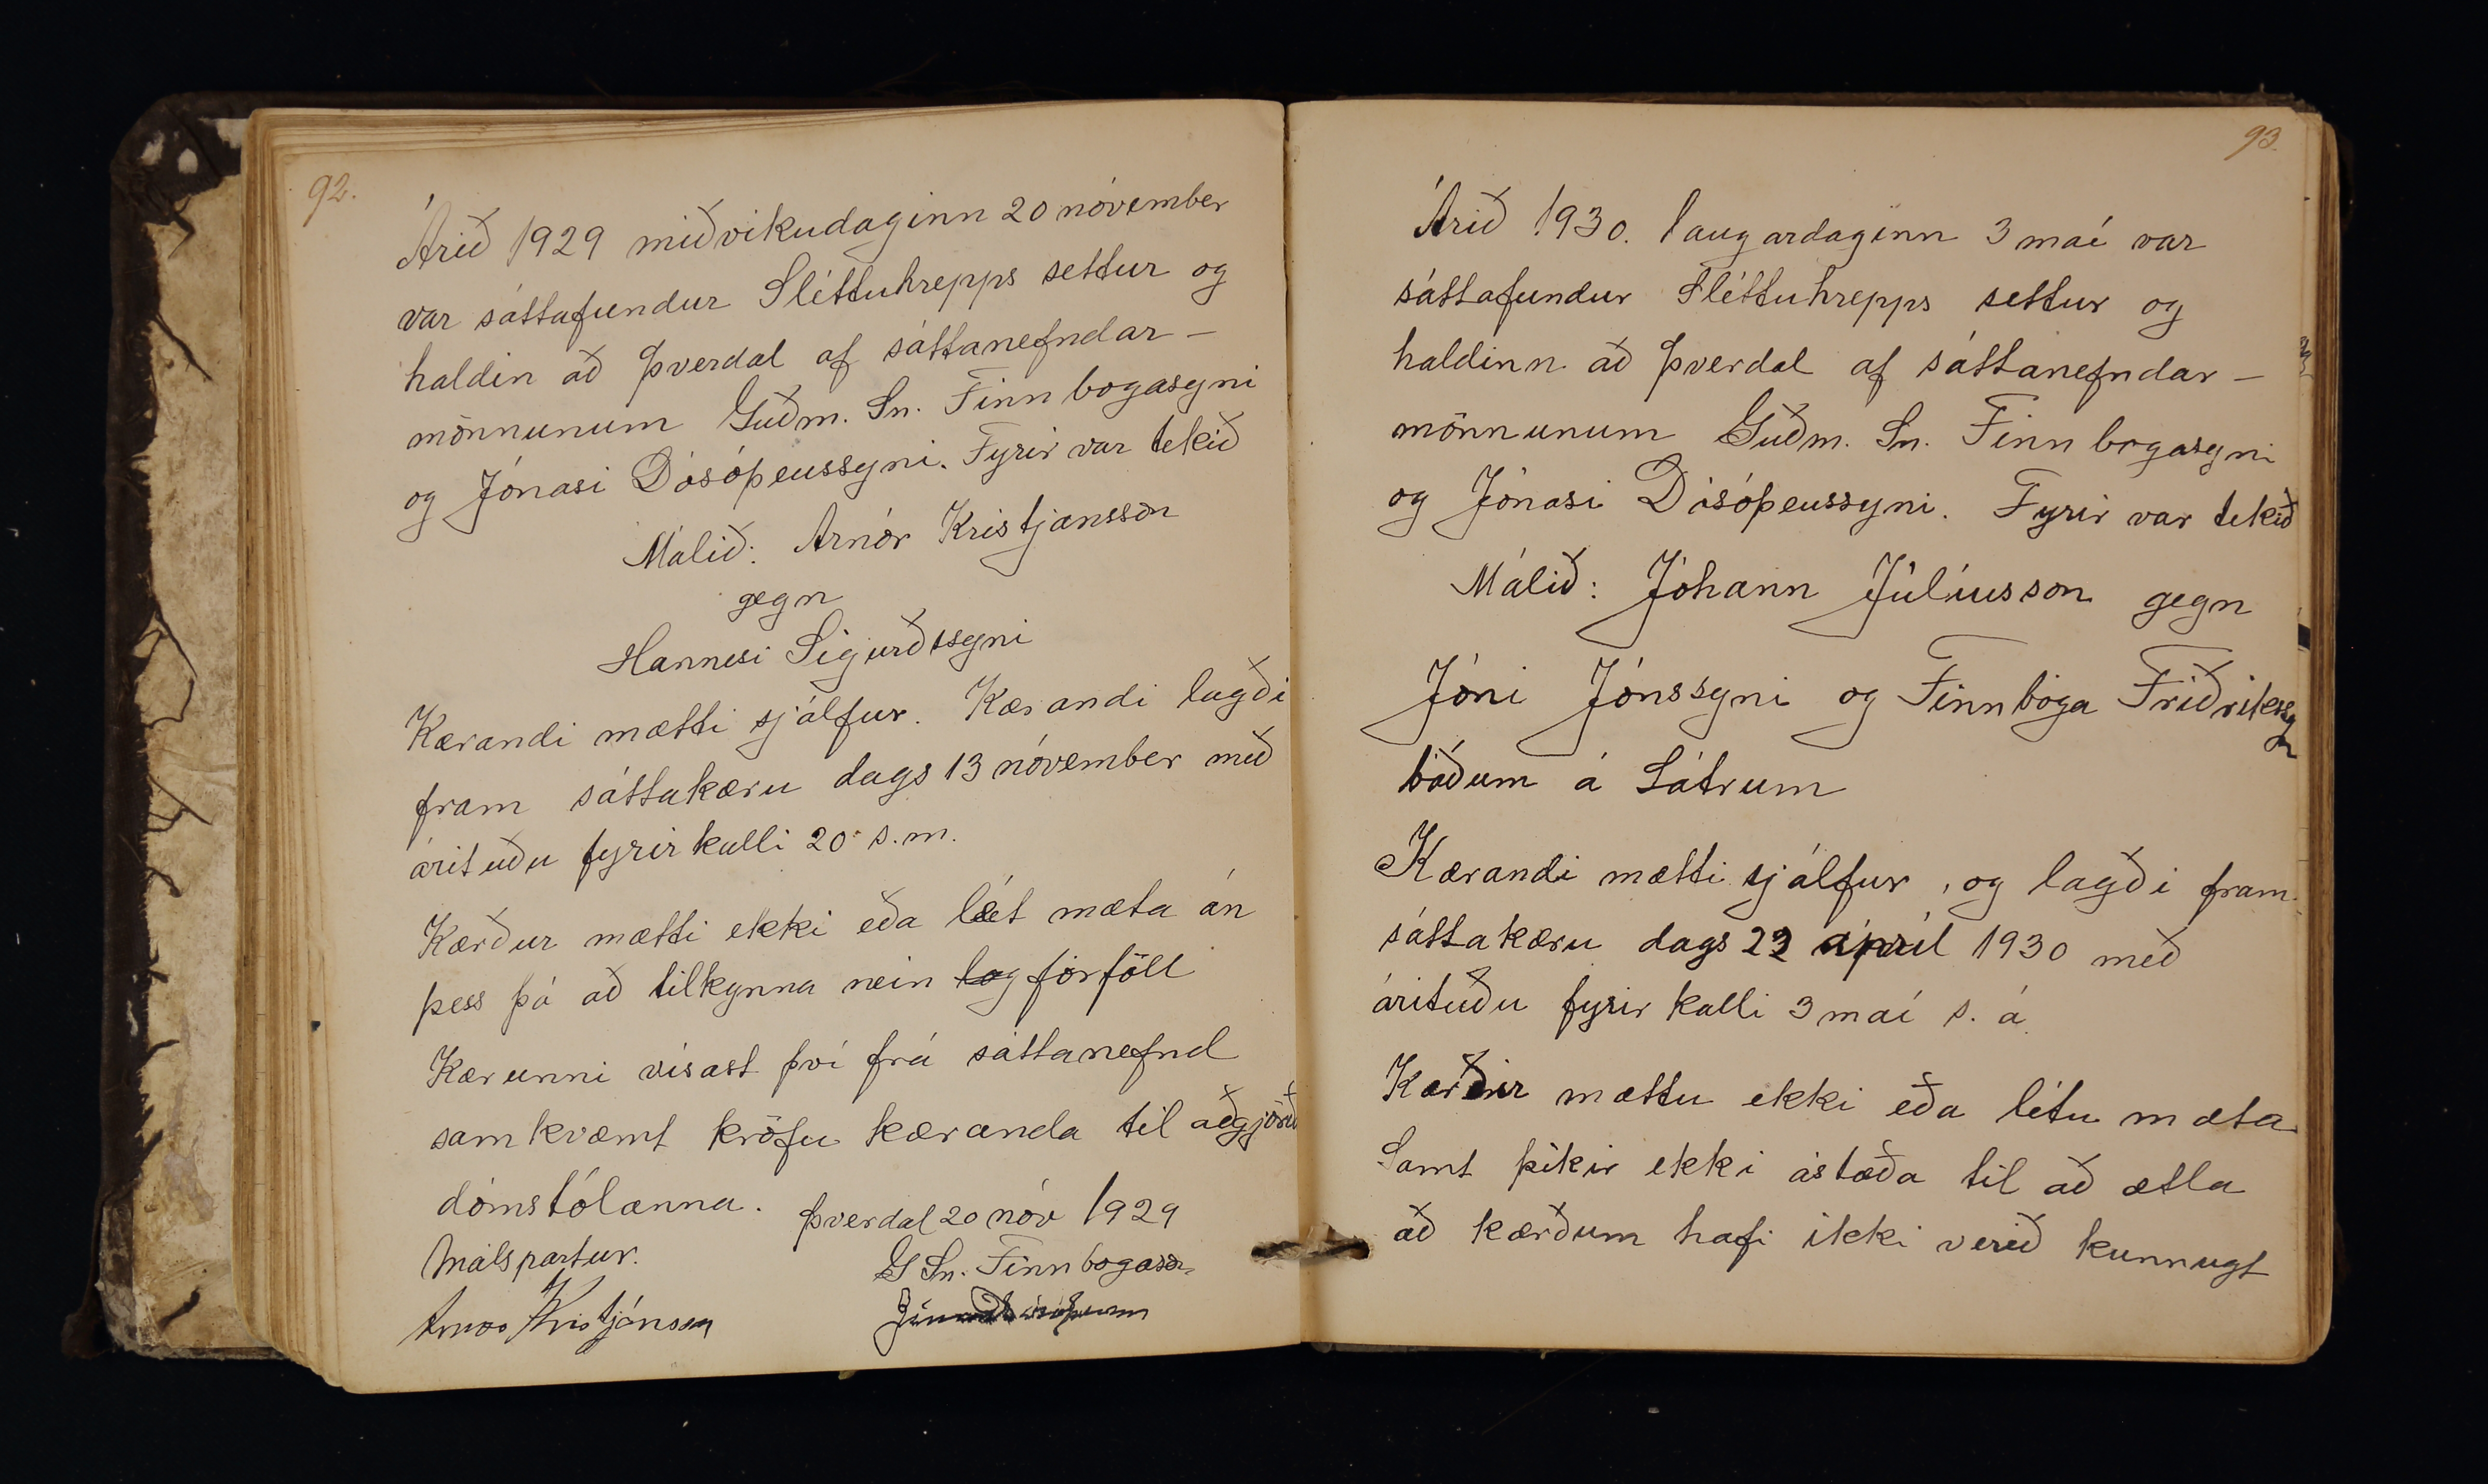 92.
Árið 1929 miðvikudaginn 20 nóvember
var sáttafundur Sléttuhrepps settur og
haldin að Þverdal af sáttanefndar-
mönnunum Guðm. Sn. Finnbogasyni
og Jónasi Dósóþeussyni. Fyrir var tekið
Málið: Arnór Kristjánsson
gegn
Hannesi Sigurðssyni
Kærandi mætti sjálfur. Kærandi lagði
fram sáttakæru dags 13 nóvember með
árituðu fyrirkalli 20 s.m.
Kærður mætti ekki eða lét mæta án
þess þá að tilkynna nein log forföll
Kærunni vísast því frá sáttanefnd
samkvæmt kröfu kæranda til aðgjörð
dómstólanna. Þverdal 20 nóv 1929
Málspartur. G Sn. Finnbogason
Arnór Kristjánsson
93.
Árið 1930. laugardaginn 3 maí var
sáttafundur Sléttuhrepps settur og
haldinn að Þverdal af sáttanefndar-
mönnunum Guðm. Sn. Finnbogasyni
og Jónasi Dósóþeussyni. Fyrir var tekið
Málið: Jóhann Júlíusson gegn
Jóni Jónssyni og Finnboga Friðrikssyn
báðum á Látrum
Kærandi mætti sjálfur, og lagði fram
sáttakæru dags 22 apríl 1930 með
árituðu fyrirkalli 3 maí s. á
Kærðir mættu ekki eða létu mæta
Samt þikir ekki ástæða til að ætla
að kærðum hafi ekki verið kunnugt